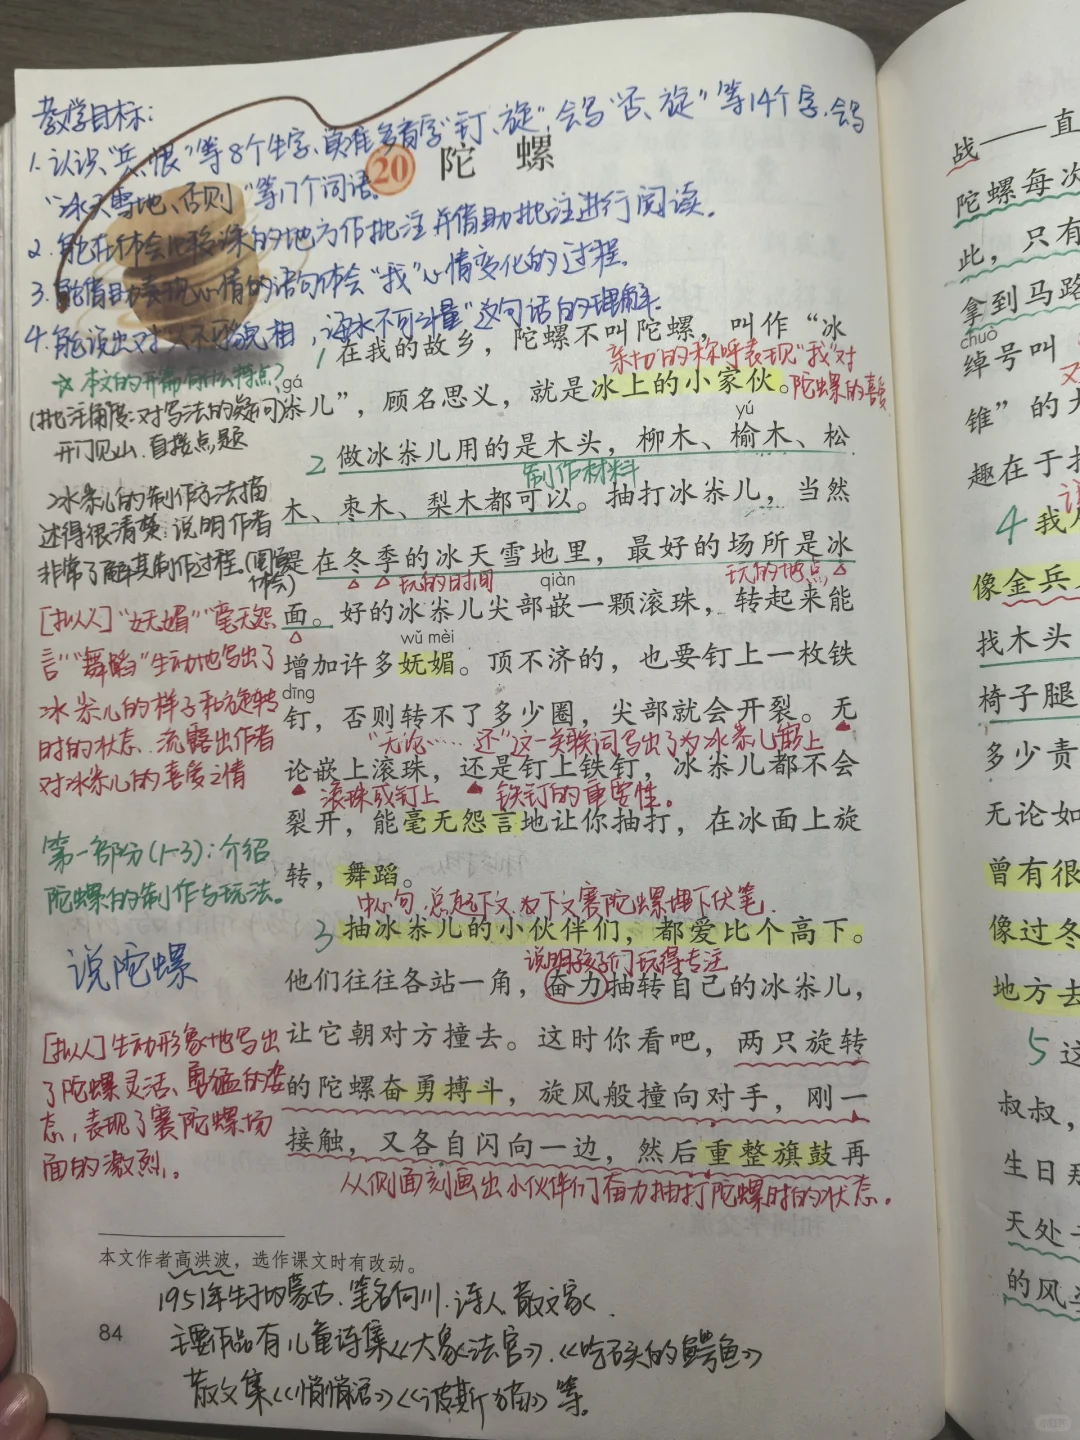 教学目标:
1.认识“兵、恨”等8个生字,读准多音字“钉、旋”,会写“否、旋”等14个字,会写
“冰天雪地、否则”等17个词语。
2.能在体会比较深的地方作批注,并借助批注进行阅读。
3.能借助表现心情的语句体会“我”心情变化的过程。
4.能说出对“人不可貌相,海水不可斗量”这句话的理解。
20 陀 螺
☆本文的开篇有什么特点?
(批注角度:对写法的疑问)
开门见山、直接点题
1 在我的故乡,陀螺不叫陀螺,叫作“冰
亲切的称呼表现“我”对
gá
尜儿”,顾名思义,就是冰上的小家伙。
陀螺的喜爱
yú
2 做冰尜儿用的是木头,柳木、榆木、松
制作材料
木、枣木、梨木都可以。抽打冰尜儿,当然
是在冬季的冰天雪地里,最好的场所是冰
玩的时间
玩的地点
qiàn
面。好的冰尜儿尖部嵌一颗滚珠,转起来能
wǔ mèi
增加许多妩媚。顶不济的,也要钉上一枚铁
dīng
钉,否则转不了多少圈,尖部就会开裂。无
“无论……还”这一关联词写出了为冰尜儿嵌上
论嵌上滚珠,还是钉上铁钉,冰尜儿都不会
滚珠或钉上
铁钉的重要性。
裂开,能毫无怨言地让你抽打,在冰面上旋
转,舞蹈。
中心句,总起下文,为下文赛陀螺埋下伏笔.
3 抽冰尜儿的小伙伴们,都爱比个高下。
说明孩子们玩得专注
他们往往各站一角,奋力抽转自己的冰尜儿,
让它朝对方撞去。这时你看吧,两只旋转
的陀螺奋勇搏斗,旋风般撞向对手,刚一
接触,又各自闪向一边,然后重整旗鼓再
从侧面刻画出小伙伴们奋力抽打陀螺时的状态。
冰尜儿的制作方法描
述得很清楚,说明作者
非常了解其制作过程。(阅读
体会)
[拟人]“妩媚”“毫无怨
言”“舞蹈”生动地写出了
冰尜儿的样子和旋转
时的状态,流露出作者
对冰尜儿的喜爱之情
第一部分(1-3):介绍
陀螺的制作与玩法。
说陀螺
[拟人]生动形象地写出
了陀螺灵活、勇猛的姿
态,表现了赛陀螺场
面的激烈。
本文作者高洪波,选作课文时有改动。
1951年生于内蒙古.笔名向川.诗人、散文家.
主要作品有儿童诗集《大象法官》.《吃石头的鳄鱼》
散文集《悄悄话》《波斯猫》等。
84
战——直
陀螺每次
此,只有
拿到马路
chuò
绰号叫
锥”的大
趣在于
4 我
像金兵
找木头
椅子腿
多少责
无论如
曾有很
像过冬
地方去
5 这
叔叔,
生日那
天处
的风
小红书